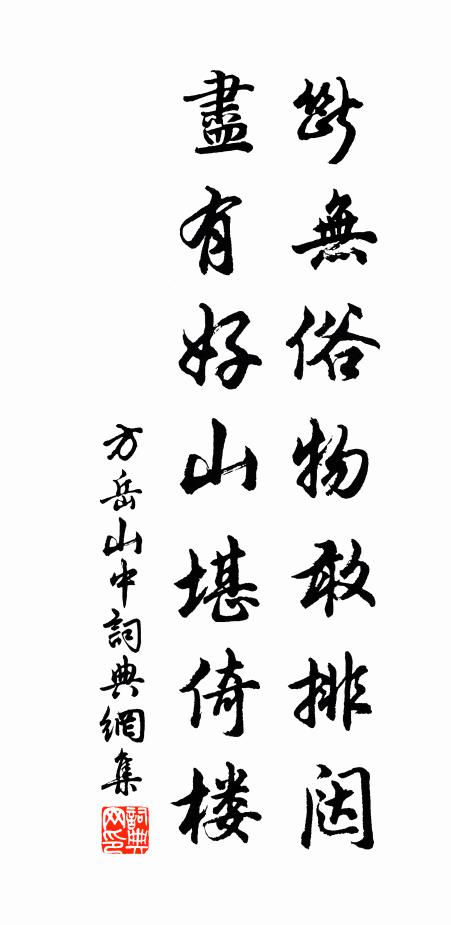 斷無俗物敢排闼
盡有好山堪倚楼
方岳山中詞典網集
詞典网印